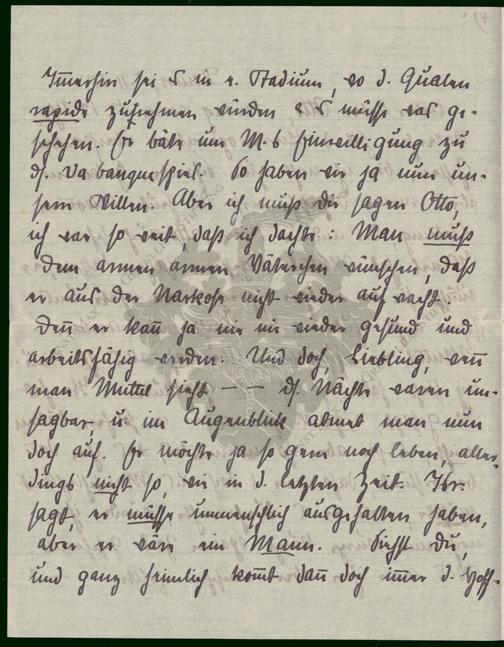 Immerhin sei es in e. Stadium, wo d. Qualen
rapide zunehmen würden & es müsse was ge-
schehen. Er bäte um M.s Einwilligung zu
ds. Vabanquespiel. So haben wir ja nun un-
sern Willen. Aber ich muß dir sagen Otto,
ich war so weit, daß ich dachte: Man muß
dem armen armen Väterchen wünschen, daß
er aus der Narkose nicht wieder aufwacht.
Den̅ er kan̅ ja nie nie wieder gesund und
arbeitsfähig werden. Und doch, Liebling, wen̅
man Muttel sieht — — ds. Nächte waren un-
sagbar, u. im Augenblick atmet man nun
doch auf. Er möchte ja so gern noch leben, aller-
dings nicht so, wie in d. letzten Zeit.
sagt er müsse unmenschlich ausgehalten haben,
aber er wäre ein Mann. Siehst du,
und ganz heimlich kom̅t dan̅ doch im̅er d. Hoff-